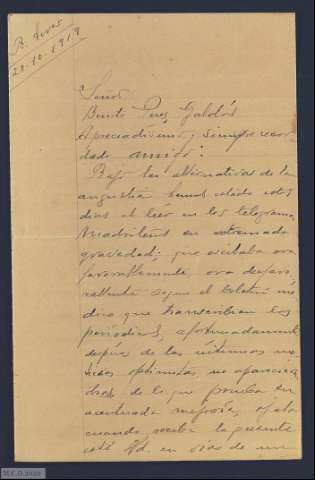 B. Aires
20-10-1919
Señor
Benito Perez Galdós
Apreciadísimo y siempre recor
dado amigo:
Bajo las alternativas de la
angustia hemos estado estos
dias al leer en los telegramas
Madrileños su extremada
gravedad; que oscilaba ora
favorablemente, ora desfavo
rablemente segun el boletin mé
dico que transcribian los
periódicos, afortunadamente
después de las últimas no
ticias optimistas, no aparecie
de lo que prueba su
acentuada mejoría, ojalá
cuando reciba la presente
esté Vd. en vias de un